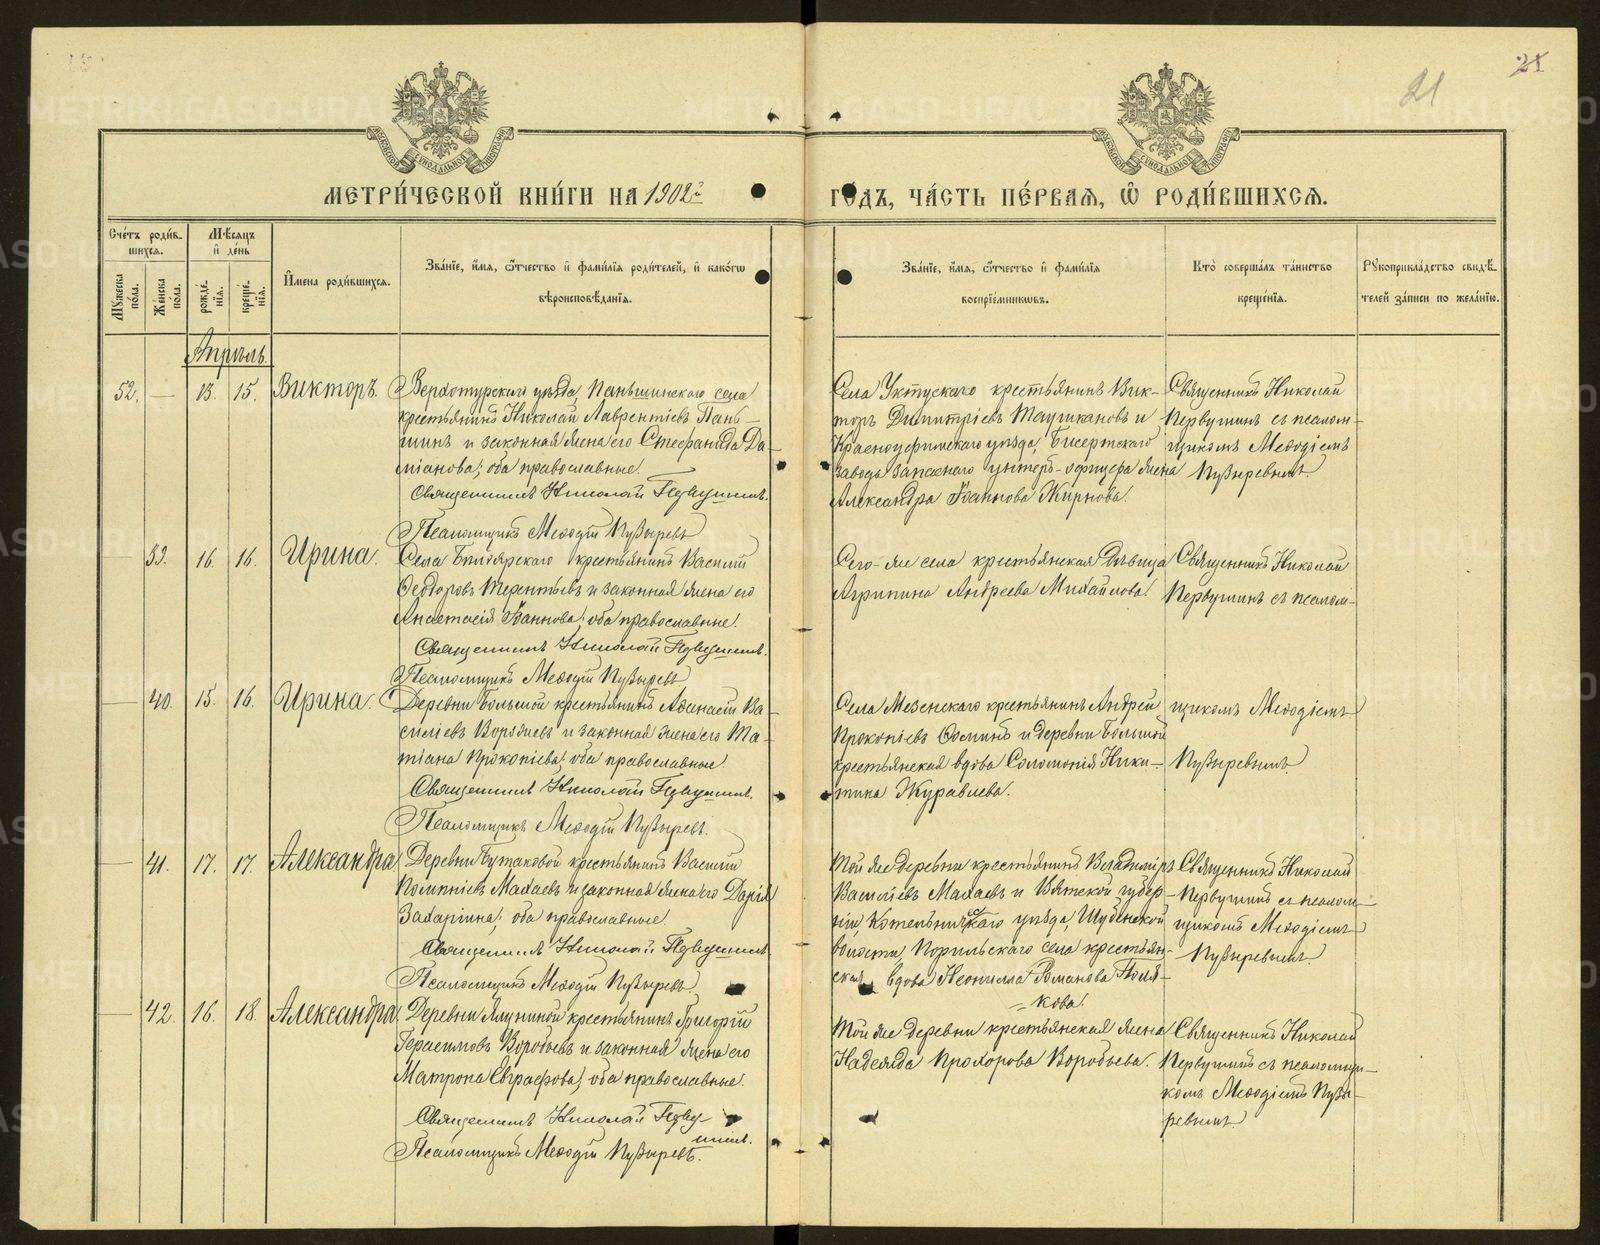 21
21
МЕТРИ́ЧЕСКОЙ КНИ́ГИ НА 1902й
ГО́ДЪ, ЧА́СТЬ ПЕ́РВАЯ, Ѿ РОДИ́ВШИХСЯ.
Сче́тъ роди́в-
шихся.
Му́жеска
по́ла.
Же́нска
по́ла.
Мѣ́сяцъ
и҆ де́нь
рожде́-
нїя.
креще́-
нїя.
И҆мена роди́вшихся.
Зва́нїе, и҆́мя, ѻ҆́тчество и҆ фами́лїя роди́телей, и҆ како́гѡ
вѣроисповѣ́данїя.
Зва́нїе, и҆́мя, ѻ҆́тчество и҆ фами́лїя
воспрїе́мникѡвъ.
Кто̀ соверша́лъ та́инство
креще́нїя.
Рꙋкоприкла́дство свидѣ́-
телей за́писи по жела́нїю.
Апрѣль.
52. — 13. 15. Викторъ.
Верхотурскаго уѣзда, Паньшинскаго села
крестьянинъ Николай Лаврентіевъ Пань-
шинъ и законная жена его Стефанида Да-
міанова; оба православные.
Священникъ Николай Первушинъ.
Псаломщикъ Меѳодій Пузыревъ
Села Уктускаго крестьянинъ Вик-
торъ Димитріевъ и
Красноуфимскаго уѣзда, Бисертскаго
завода запаснаго унтеръ-офицера жена
Александра Іоаннова Жирнова.
Священникъ Николай
Первушинъ съ псалом-
щикомъ Меѳодіемъ
Пузыревымъ.
— 39. 16. 16. Ирина.
Села крестьянинъ Василій
Ѳеодоровъ Терентьевъ и законная жена его
Анастасія Іоаннова; оба православные.
Священникъ Николай Первушинъ.
Псаломщикъ Меѳодій Пузыревъ
Сего-же села крестьянская дѣвица
Агрипина Андреева Михайлова.
Священникъ Николай
Первушинъ съ псалом-
— 40. 15. 16. Ирина.
Деревни Большой крестьянинъ Аѳанасій Ва-
силіевъ и законная жена его Та-
тіана Прокопіева; оба православные.
Священникъ Николай Первушинъ.
Псаломщикъ Меѳодій Пузыревъ.
Села Мезенскаго крестьянинъ Андрей
Прокопіевъ и деревни Большой
крестьянская вдова Соломонія Ники-
тина Журавлева.
щикомъ Меѳодіемъ
Пузыревымъ.
— 41. 17. 17. Александра
Деревни Бутаковой крестьянинъ Василій
Махаевъ и законная жена его Дарія
Захаріина; оба православные
Священникъ Николай Первушинъ
Псаломщикъ Меѳодій Пузыревъ.
Той же деревни крестьянинъ Владиміръ
Василіевъ Махаевъ и Вятской губер-
ніи, уѣзда,
волости, села крестьян-
ская вдова Неонилла Романова Поля-
кова.
Священникъ Николай
Первушинъ съ псалом-
щикомъ Меѳодіемъ
Пузыревымъ.
— 42. 16. 18. Александра
Деревни крестьянинъ Григорій
Герасимовъ Воробьевъ и законная жена его
Матрона Евграфова; оба православные.
Священникъ Николай Перву-
шинъ.
Псаломщикъ Меѳодій Пузыревъ.
Той же деревни крестьянская жена
Надежда Прохорова Воробьева.
Священникъ Николай
Первушинъ съ псаломщи-
комъ Меѳодіемъ Пузы-
ревымъ.